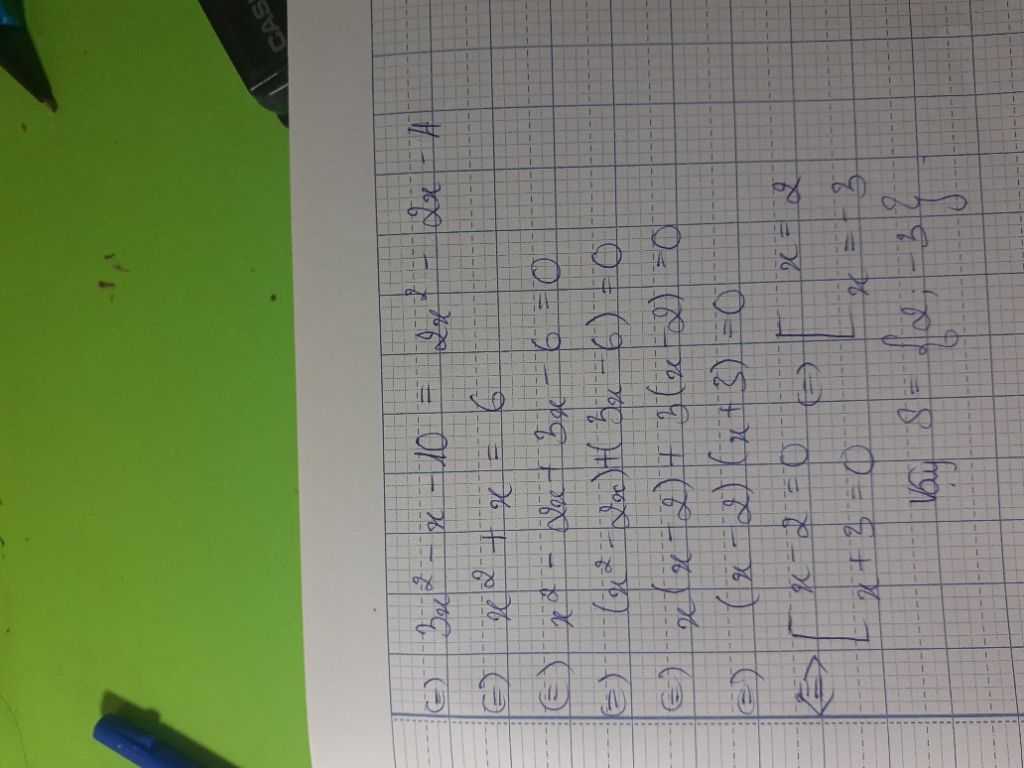 CASI
(=) 3x² - x - 10 = 2x² - 2x - 4
(=) x² + x = 6
(=) x² - 2x + 3x - 6 = 0
(=) (x² - 2x) + (3x - 6) = 0
(=) x(x - 2) + 3(x - 2) = 0
(=) (x - 2)(x + 3) = 0
<=> [ x - 2 = 0 (=) [ x = 2
x + 3 = 0 x = -3
Vậy S = {2; -3}.